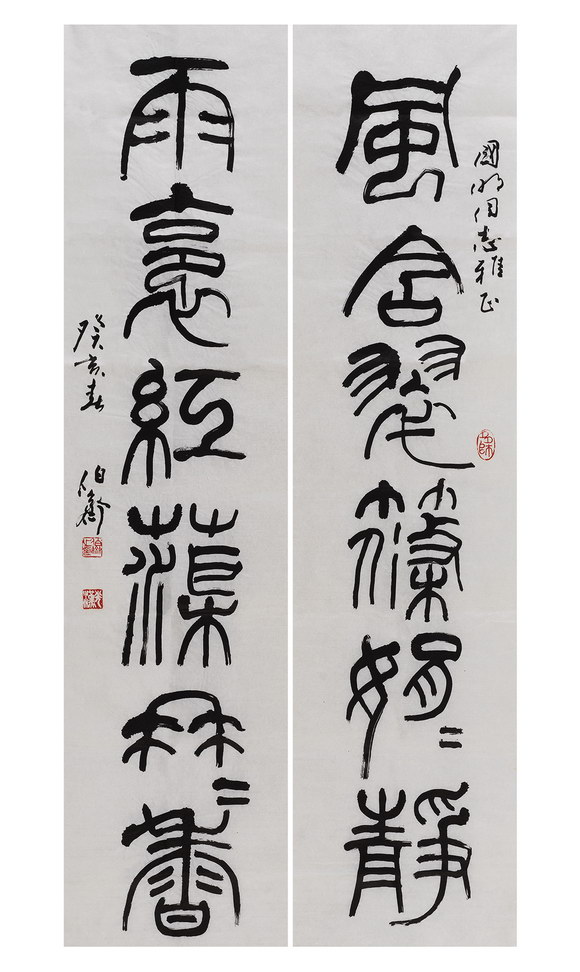 國明同志雅正
風含翠篠娟〻靜
雨裛紅蕖冉〻香
癸亥春